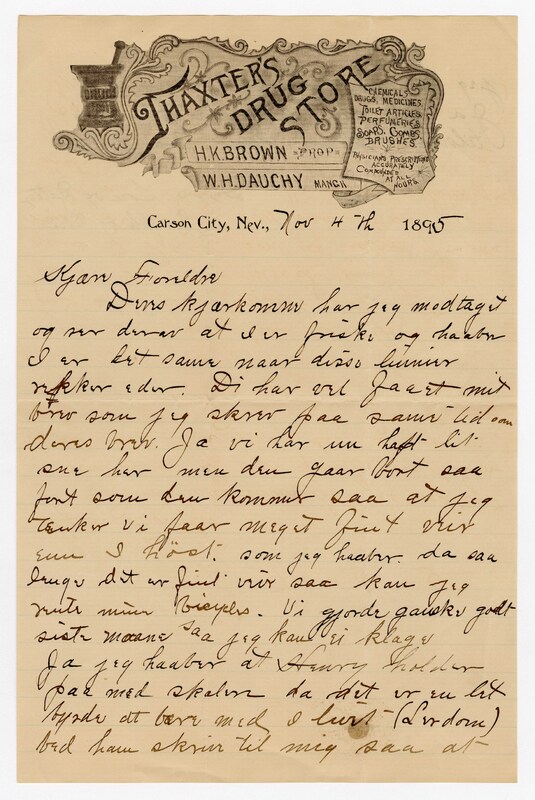 THAXTER'S
DRUG
STORE
CHEMICALS,
DRUGS, MEDICINES,
TOILET ARTICLES,
PERFUMERIES,
SOAPS, COMBS,
BRUSHES.
PHYSICIANS PRESCRIPTIONS
ACCURATELY
COMPOUNDED
AT ALL
HOURS.
H.K. BROWN PROP.
W.H. DAUCHY MANGR
Carson City, Nev., Nov 4 th 1895
Kjære Foreldre
Deres kjærkomne har jeg modtaget
og ser derav at I er friske og haaber
I er det same naar disse linnier
rekker eder. Di har vel faaet mit
brev som jeg skrev paa same tid som
deres brev. Ja vi har nu haft lit
sne her men den gaar bort saa
fort som den kommer saa at jeg
tenker vi faar meget fint veir
enn I höst. som jeg haaber. da saa
lenge det er fint veir saa kan jeg
rente mine Bisiples. Vi gjorde ganske godt
siste maane saa jeg kan ei klage
Ja jeg haaber at Henry holder
paa med skolen da det er en let
byrde at bere med I livet (Lerdom)
bed ham skrive til mig saa at